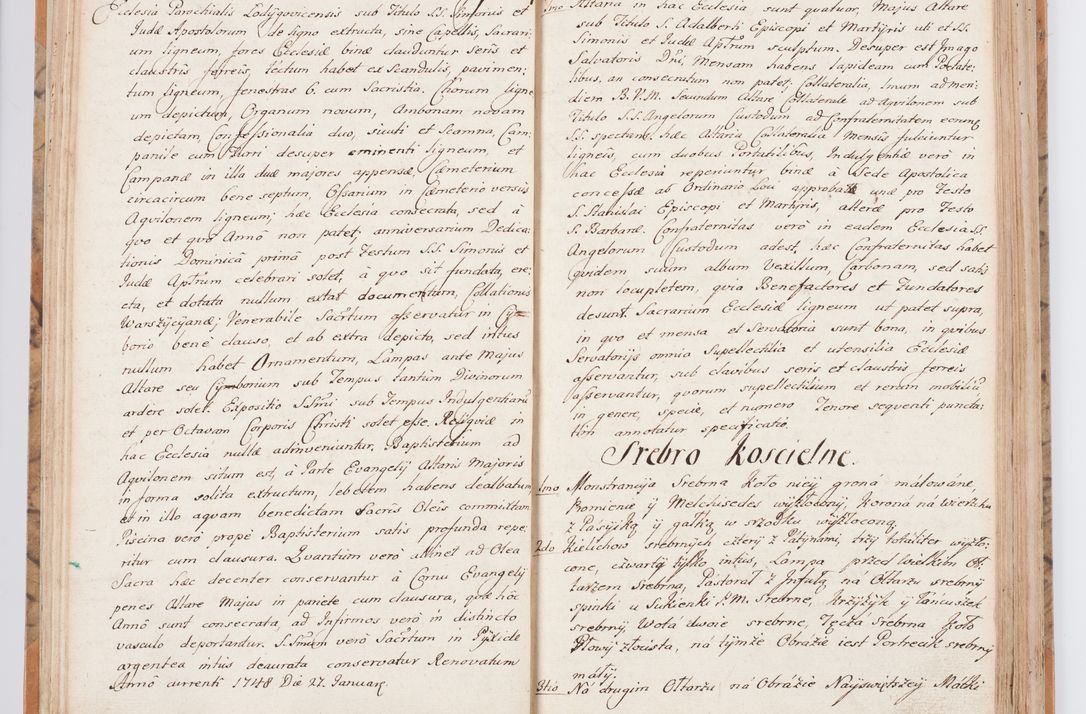 Ecclesia Parochialis Lodygovicensis sub Titulo S.S. Simonis et
Judæ Apostolorum de ligno extructa, sine Capellis, Sacrari:
um ligneum, fores Ecclesiæ binæ clauduntur seris et
claustris ferreis, tectum habet ex Scandulis, pavimen:
tum ligneum, fenestras 6. cum Sacristia. Chorum ligne
um depictum, Organum novum, Ambonam novam
depictam, Confessionalia duo, sicuti et Scamna, Cam:
panile cum Turri desuper eminenti ligneum, et
Campanæ in illa duæ majores appensæ, Cæmeterium
circacircum bene septum, Ossarium in Cæmeterio versus
Aqvilonem ligneum; hæc Ecclesia consecrata, sed à
qvo et qvô Annô non patet, anniversarium Dedica:
tionis Dominicâ primâ post Festum S.S. Simonis et
Judæ Aptrum celebrari solet, à qvo sit fundata, ere:
cta, et dotata nullum extat documentum, Collationis
Warszÿcÿanæ; Venerabile Sacrtum asservatur in Cÿ
borio benè clauso, et ab extra depicto, sed intus
nullum habet Ornamentum, Lampas ante Majus
Altare seu Cÿmborium sub Tempus tantum Divinorum
ardere solet. Expositio S.Smi sub Tempus Indulgentiaru
et per Octavam Corporis Christi solet esse. Reliqviæ in
hac Ecclesia nullæ adinveniuntur. Baptisterium ad
Aqvilonem situm est, à Parte Evangelij Altaris Majoris
in forma solita extructum, lebetem habens dealbatum
et in illo aqvam benedictam Sacris Oleis committam
Piscina verò propè Baptisterium satis profunda repe:
ritur cum clausura. Qvantùm verò attinet ad Olea
Sacra hæc decenter conservantur à Cornu Evangelij
penes Altare Majus in pariete cum clausura, qvæ hôc
Annô sunt consecrata, ad Infirmos verò in distincto
vasculo deportantur. S.Smum verò Sacrtum in Pÿxide
argentea intùs deaurata conservatur Renovatum
Annô currenti 1748 Die 27. Januarij.
1mo Altaria in hac Ecclesia sunt qvatuor, Majus Altare
sub Titulo S. Adalberti Episcopi et Martÿris uti et SS.
Simonis et Judæ Aptrum sculptum. Desuper est Imago
Salvatoris Dni; Mensam habens lapideam cum Portate:
libus, an consecratum non patet; Collateralia, 1mum ad meri:
diem B.V.M. Secundum Altare Collaterale ad Aqvilonem sub
Titulo S.S. Angelorum Custodum ad Confraternitatem eorund
S.S. spectans, hæc Altaria Collateralia Mensis fulciuntur
ligneis, cum duobus Portatilibus, Indulgentiæ verò in
hac Ecclesia reperiuntur binæ à Sede Apostolica
concessæ ab Ordinario Loci approbatæ unæ pro Festo
S. Stanislai Episcopi et Martÿris, alteræ pro Festo
S. Barbaræ. Confraternitas verò in eadem Ecclesia SS.
Angelorum Custodum adest, hæc Confraternitas habet
qvidem suum album Vexillum, Carbonam, sed satis
non locupletem, qvia Benefactores et Fundatores
desunt. Sacrarium Ecclesiæ ligneum ut patet supra,
in qvo et mensa et Servatoria sunt bona, in qvibus
Servatorijs omnia Supellectilia et utensilia Ecclesiæ
asservantur, sub clavibus seris et claustris ferreis
asservantur, qvorum supellectilium et rerum mobiliu
in genere, specie, et numero Tenore seqventi puncta:
tim annotatur specificatio.
Srebro koscielne.
1mo Monstrancÿja Srebrna koło nieÿ grona malowane,
Promienie ÿ Melchisedes wÿzłocony Korona na Wierzchu
z Pasÿiką ÿ gałką w srzodku wÿzłocona.
2do Kielichow srebrnych czterÿ z Patÿnami, trzÿ totaliter wÿzło:
cone, czwartÿ tÿlko intus, Lampa przed Wielkim Oł
tarzem Srebrna, Pastorał z Infułą na Ołtarzu srebrnÿ
spinki u Sukienki P.M. srebrne, Krzÿżÿk ÿ łancuszek
srebrnÿ, Wota dwoie srebrne, Tęcza Srebrna koło
Głowÿ złousta, na tÿmże Obrazie iest Portrecik srebrnÿ
małÿ.
3tio Na drugim Ołtarzu na Obrazie Nayświętszeÿ Matki